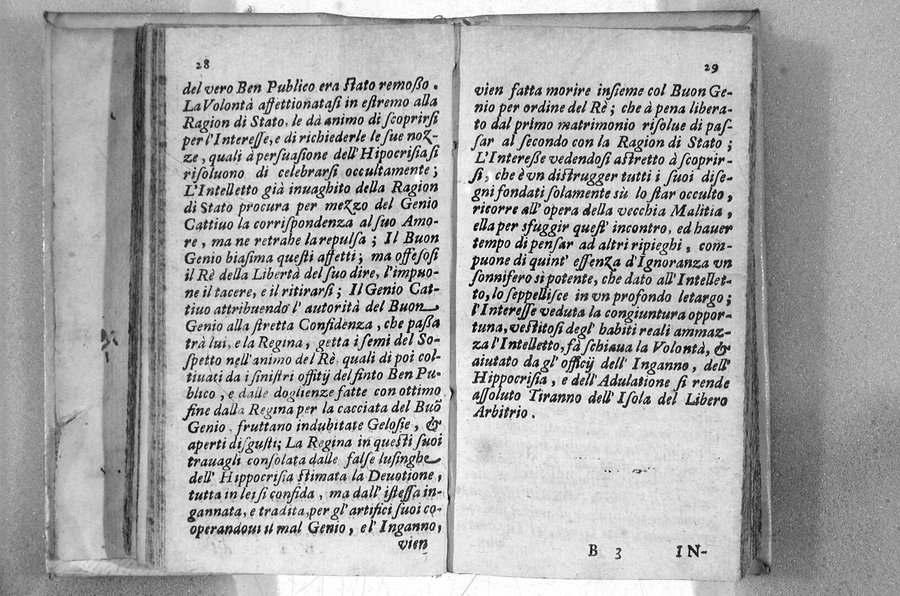 28
del vero Ben Publico era ſtato remoſſo.
La Volontà affettionataſi in eſtremo alla
Ragion di Stato, le dà animo di ſcoprirſi
per l'Intereſſe, e di richiederle le ſue noz-
ze, quali à perſuaſione dell'Hipocriſia ſi
riſoluono di celebrarſi occultamente;
L'Intelletto già inuaghito della Ragion
di Stato procura per mezzo del Genio
Cattiuo la corriſpondenza al ſuo Amo-
re, ma ne retrahe la repulſa; Il Buon
Genio biaſima queſti affetti; ma offeſoſi
il Rè della Libertà del ſuo dire, l'impuo-
ne il tacere, e il ritirarſi; Il Genio Cat-
tiuo attribuendo l'autorità del Buon
Genio alla ſtretta Confidenza, che paſſa
trà lui, e la Regina, getta i ſemi del So-
ſpetto nell'animo del Rè, quali di poi col-
tiuati da i ſiniſtri offitij del finto Ben Pu-
blico, e dalle doglienze fatte con ottimo
fine dalla Regina per la cacciata del Buõ
Genio, fruttano indubitate Geloſie, &
aperti diſguſti; La Regina in queſti ſuoi
trauagli conſolata dalle falſe luſinghe
dell' Hippocriſia ſtimata la Deuotione,
tutta in lei ſi confida, ma dall' iſteſſa in-
gannata, e tradita, per gl'artifici ſuoi co-
operandoui il mal Genio, e l'Inganno,
vien
29
vien fatta morire inſieme col Buon Ge-
nio per ordine del Rè; che à pena libera-
to dal primo matrimonio riſolue di paſ-
ſar al ſecondo con la Ragion di Stato;
L'Intereſſe vedendoſi aſtretto à ſcoprir-
ſi, che è vn diſtrugger tutti i ſuoi diſe-
gni fondati ſolamente sù lo ſtar occulto,
ricorre all' opera della vecchia Malitia,
ella per sfuggir queſt' incontro, ed hauer
tempo di penſar ad altri ripieghi, com-
puone di quint' eſſenza d'Ignoranza vn
ſonnifero sì potente, che dato all'Intellet-
to, lo ſeppelliſce in vn profondo letargo;
l'Intereſſe veduta la congiuntura oppor-
tuna, veſtitoſi degl' habiti reali ammaz-
za l'Intelletto, fà ſchiaua la Volontà, &
aiutato da gl' officij dell' Inganno, dell'
Hippocriſia, e dell'Adulatione ſi rende
aſſoluto Tiranno dell' Iſola del Libero
Arbitrio.
B 3 IN-